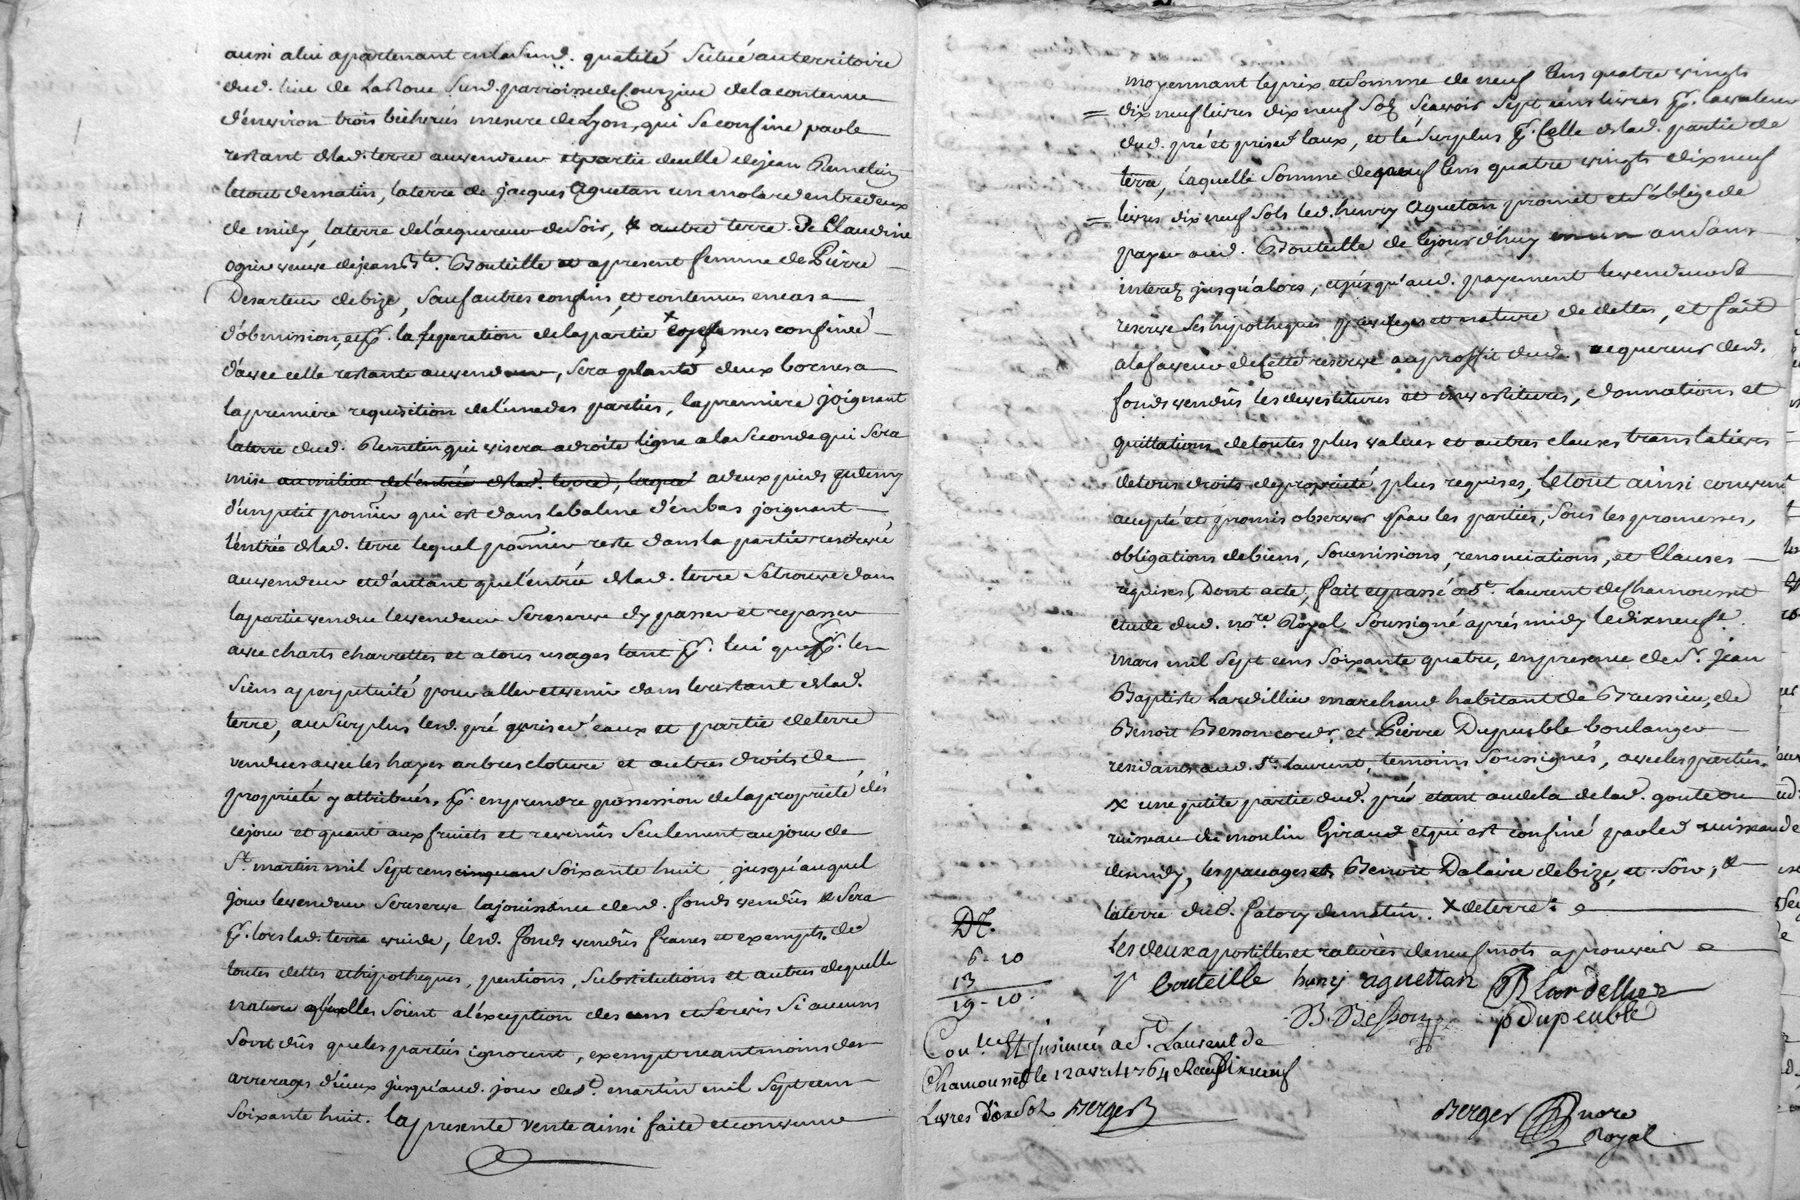 aussi a lui apartenant en lad sud. qualité scitué au territoire
dud. lieu de Laroue sud. parroisse de Courzieu de la contenue
d'environ trois bicherées mesure de Lyon, qui se confine par le
restant de lad. terre au vendeur et partie de celle de jean Remelin
le tout de matin, la terre de jacques Aguetan un molard entre deux
de midy, la terre de l'acquereur de soir, & autre terre de Claudine
Ogier veuve de jean Bte. Bouteille et apresent femme de Pierre
Desarteur de bize, sauf autres confins, et contenues en cas
d'obmission, et pr. la separation de la partie x cy dessus confinée
d'avec celle restante au vendeur, sera planté deux bornes a
la premiere requisition de l'une des parties, la premiere joignant
la terre dud. Remelin qui visera a droite ligne a la seconde qui sera
mise au milieu de l'entrée de lad. terre, laque a deux pieds et demy
d'un petit pomier qui est dans la balme d'en bas joignant
l'entrée de lad. terre lequel pomier reste dans la partie reservée
au vendeur et d'autant que l'entrée de lad. terre se trouve dans
la partie vendue le vendeur se reserve d'y passer et repasser
avec charts charrettes et a tous usages tant pr. lui que pr. les
siens a perpetuité pour aller et venir dans le restant de lad.
terre, au surplus led. pré prise d'eaux et partie de terre
vendues avec les hayes arbres cloture et autres droits de
propriété y attribués, pr. en prendre possession de la propriété dés
ce jour et quant aux fruits et revenus seulement au jour de
St. martin mil sept cens cinquan soixante huit jusqu'auquel
jour le vendeur se reserve la jouissance desd. fonds vendûs & sera
pr. lors lad. terre vuide, lesd. fonds vendûs francs et exempts de
toutes dettes et hypotheques, pentions, substitutions et autres de quelle
nature qu'elles soient a l'exception des cens et servis si aucuns
sont dûs que les parties ignorent, exempt neantmoins des
arrerages d'iceux jusqu'aud. jour de St. martin mil sept cens
soixante huit. la presente vente ainsi faite et convenue
moyennant le prix et somme de neuf cens quatre vingts
= dix neuf livres dix neuf sols scavoir sept cens livres pr. la valeur
dud. pré et prise d'eaux, et le surplus pr. celle de lad. partie de
terre, laquelle somme de neuf cens quatre vingts dix neuf
= livres dix neuf sols led. henry Aguetan promet et s'oblige de
payer aud. Bouteille de ce jour d'huy en un an sans
interets jusqu'alors, et jusqu'aud. payement le vendeur se
reserve ses hypotheques privileges et nature de dettes, et fait
a la faveur de cette reserve au proffit dud. acquereur desd.
fonds vendûs les devestitures et investitures, donnations et
quittations de toutes plus values et autres clauses translatives
de tous droits de propriété plus requises, le tout ainsi convenu
accepté et promis observer par les parties, sous les promesses,
obligations de biens, soumissions, renonciations, et clauses
requises, Dont acte, fait et passé a St. Laurent de Chamousset
etude dud. nore. Royal soussigné aprés midy le dix neuf
mars mil sept cens soixante quatre, en presence de Sr. jean
Baptiste Lardillier marchand habitant de Brussieu, de
Benoit Besson cordr. et Pierre Dupeuble boulanger
residants aud. St. Laurent, temoins soussignés, avec les parties.
x une petite partie dud. pré etant au dela de lad. goute ou
ruisseau du moulin Giraud et qui est confiné par led ruisseau de
de midy, les pacages de Benoit Dalaire de bize, et soir, &
la terre dud. fatory de matin. x de terre
Les deux apostilles et ratures de neuf mots approuvées
Dt.
6 - 10
13
19 - 10.
p Bouteille henry aguettan JB lardellier
B. Besson p dupeuble
Conlé. Et Insinué a St. Laurent de
Chamousset le 12 avril 1764 Receu dix neuf
Livres dix sols Berger
Berger nore
Royal